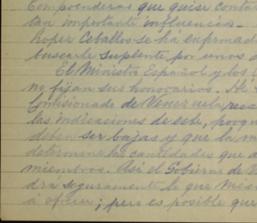 Compondencias que quise contar
tan importante influencia.
hoper Ceballos se há enfermado
buscarle suplente por unos d
El Ministro Español y los
no fijan sus honorarios. He
Comisionado de Venezuela
las indicaciones de este, porque
deben ser bajas y que la m
determine las cantidades que a
miembros. Así el Gobierno de
drá seguramente lo que
á ofrecer; pero es posible que